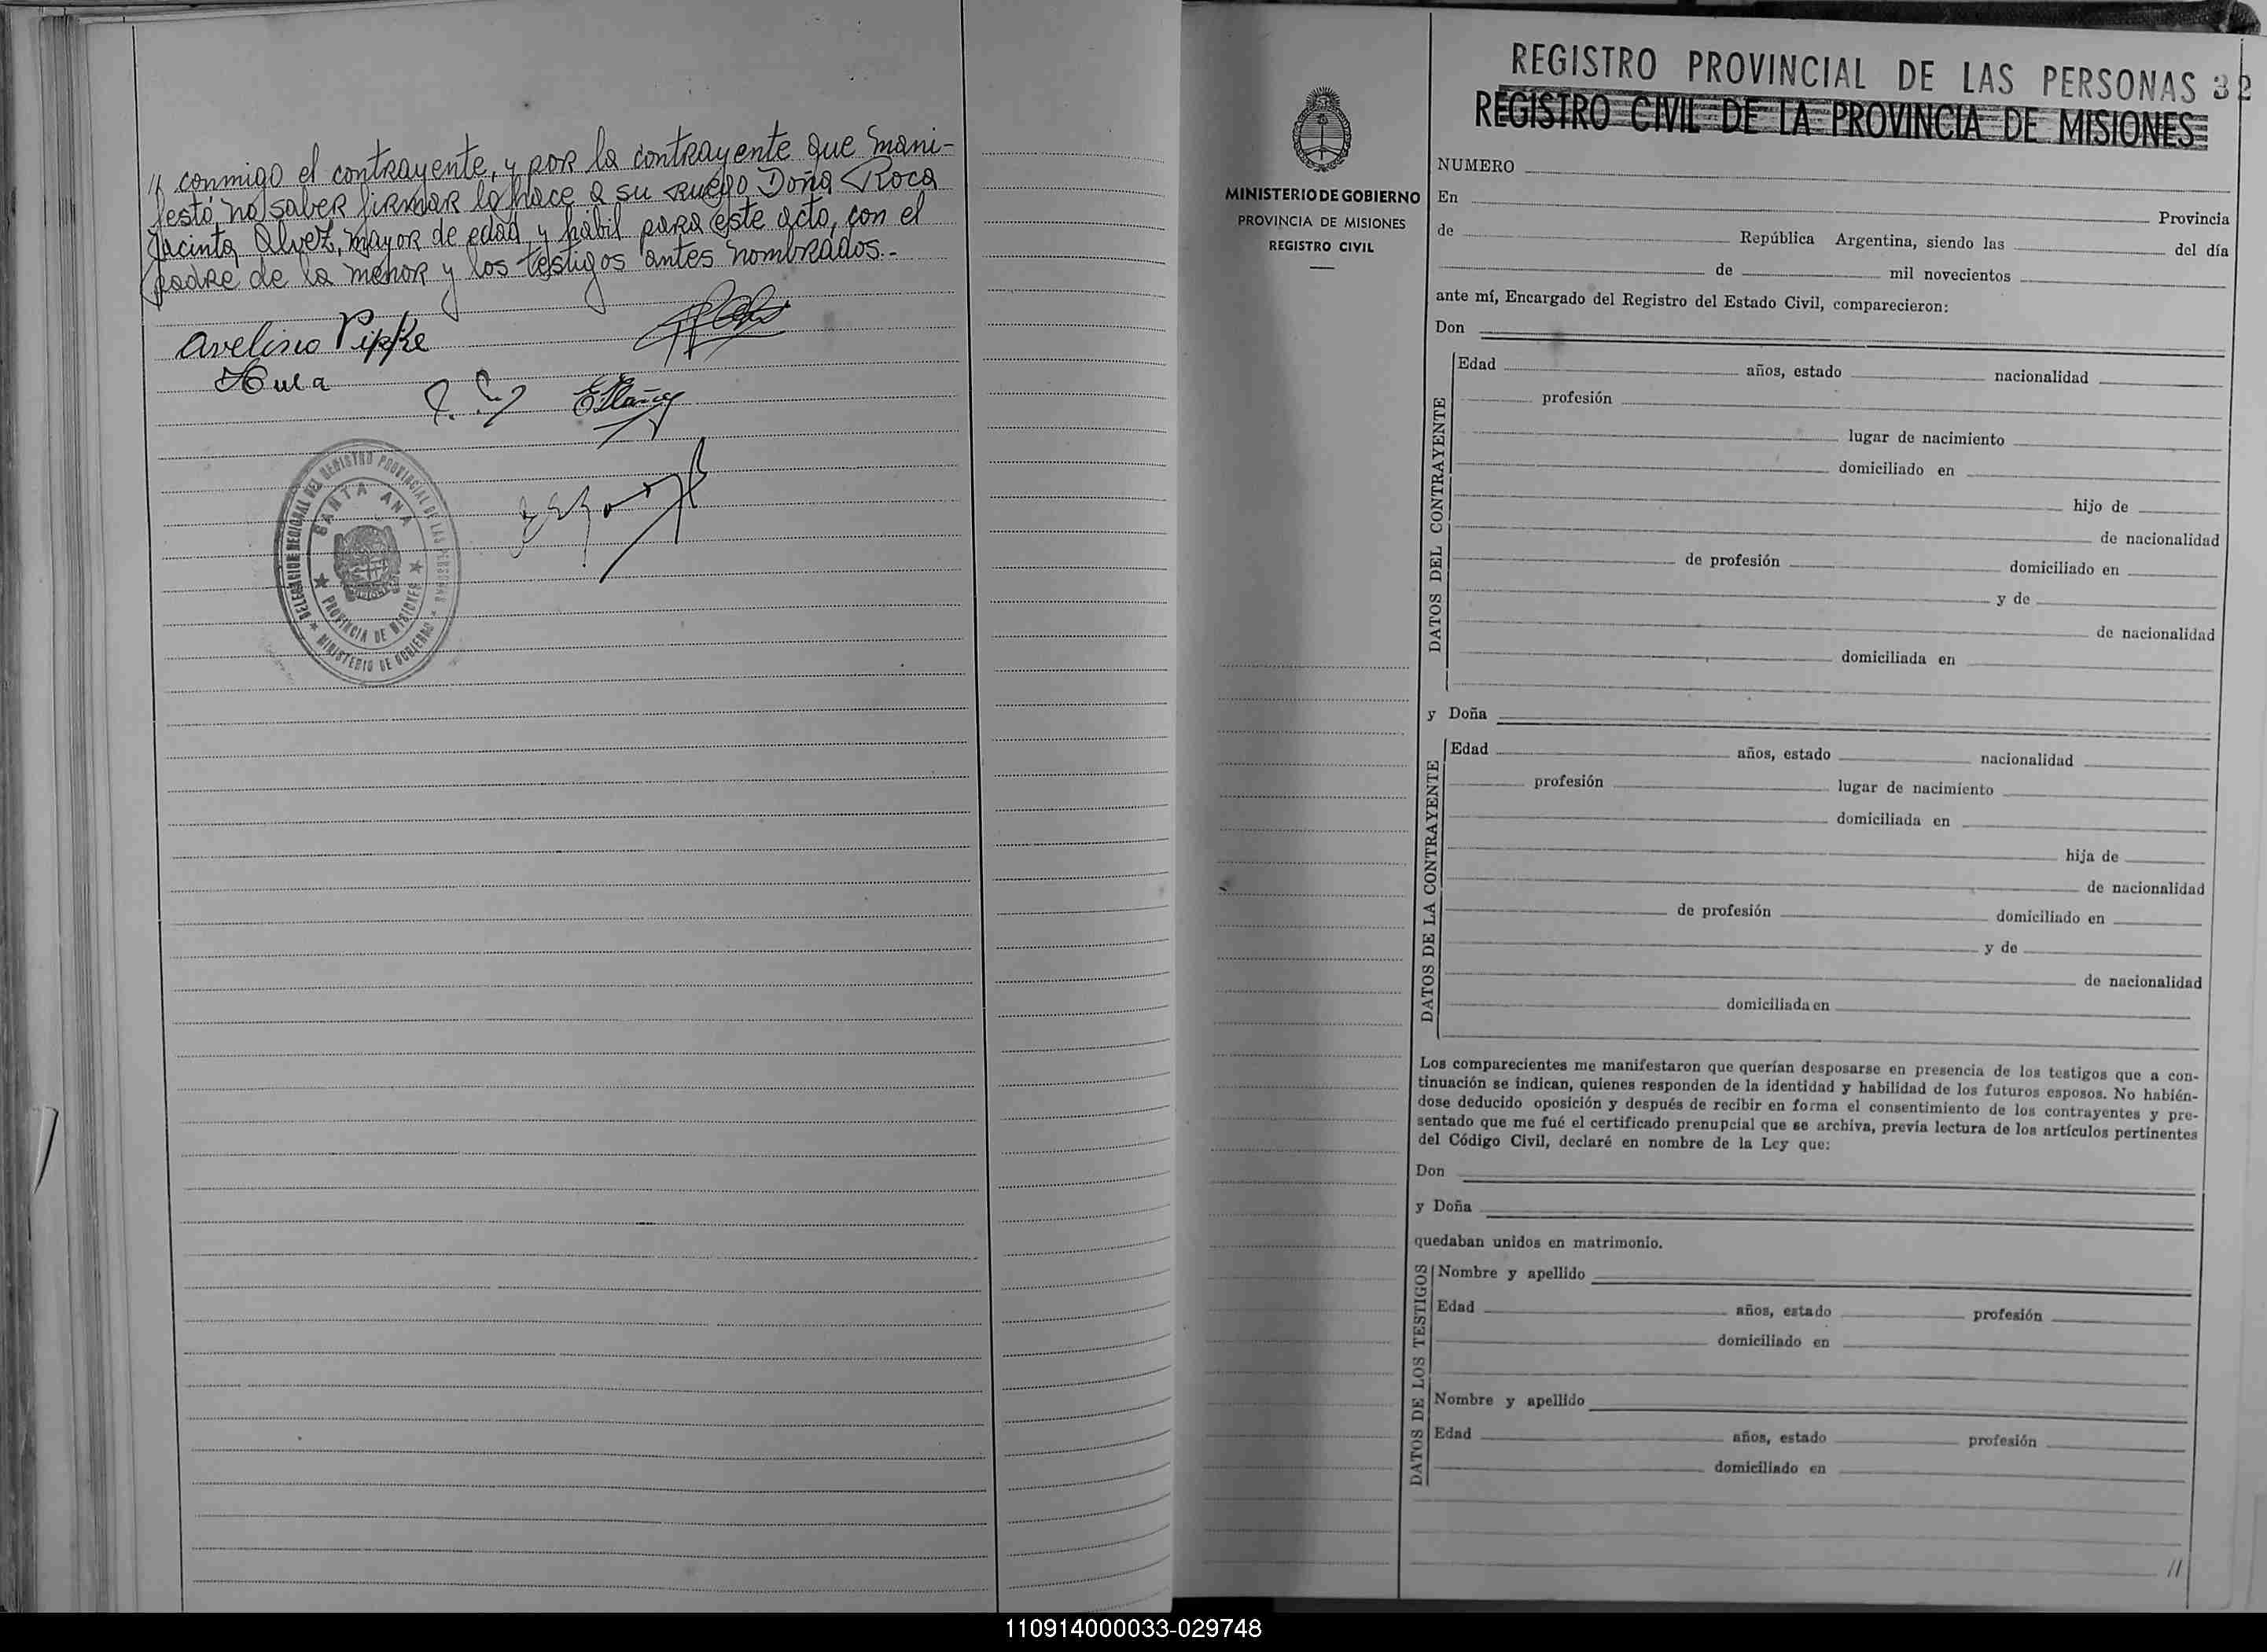 // conmigo el contrayente, y por la contrayente que mani-
festó no saber firmar lo hace a su ruego Doña Roca
Jacinta Alvez, mayor de edad y hábil para este acto, con el
padre de la menor y los testigos antes nombrados.-
Avelino Pipke
DELEGACION REGIONAL DEL REGISTRO PROVINCIAL DE LAS PERSONAS
SANTA ANA
PROVINCIA DE MISIONES
MINISTERIO DE GOBIERNO
REGISTRO PROVINCIAL DE LAS PERSONAS 32
REGISTRO CIVIL DE LA PROVINCIA DE MISIONES
MINISTERIO DE GOBIERNO
PROVINCIA DE MISIONES
REGISTRO CIVIL
NUMERO
En Provincia
de República Argentina, siendo las del día
de mil novecientos
ante mí, Encargado del Registro del Estado Civil, comparecieron:
Don
DATOS DEL CONTRAYENTE
Edad años, estado nacionalidad
profesión
lugar de nacimiento
domiciliado en
hijo de
de nacionalidad
de profesión domiciliado en
y de
de nacionalidad
domiciliada en
y Doña
DATOS DE LA CONTRAYENTE
Edad años, estado nacionalidad
profesión lugar de nacimiento
domiciliada en
hija de
de nacionalidad
de profesión domiciliado en
y de
de nacionalidad
domiciliada en
Los comparecientes me manifestaron que querían desposarse en presencia de los testigos que a con-
tinuación se indican, quienes responden de la identidad y habilidad de los futuros esposos. No habién-
dose deducido oposición y después de recibir en forma el consentimiento de los contrayentes y pre-
sentado que me fué el certificado prenupcial que se archiva, previa lectura de los artículos pertinentes
del Código Civil, declaré en nombre de la Ley que:
Don
y Doña
quedaban unidos en matrimonio.
DATOS DE LOS TESTIGOS
Nombre y apellido
Edad años, estado profesión
domiciliado en
Nombre y apellido
Edad años, estado profesión
domiciliado en
//
110914000033-029748